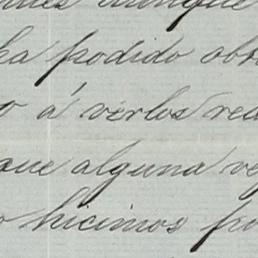 aunque
ha podido obt
o á verlos rea
que alguna ve
o hicimos